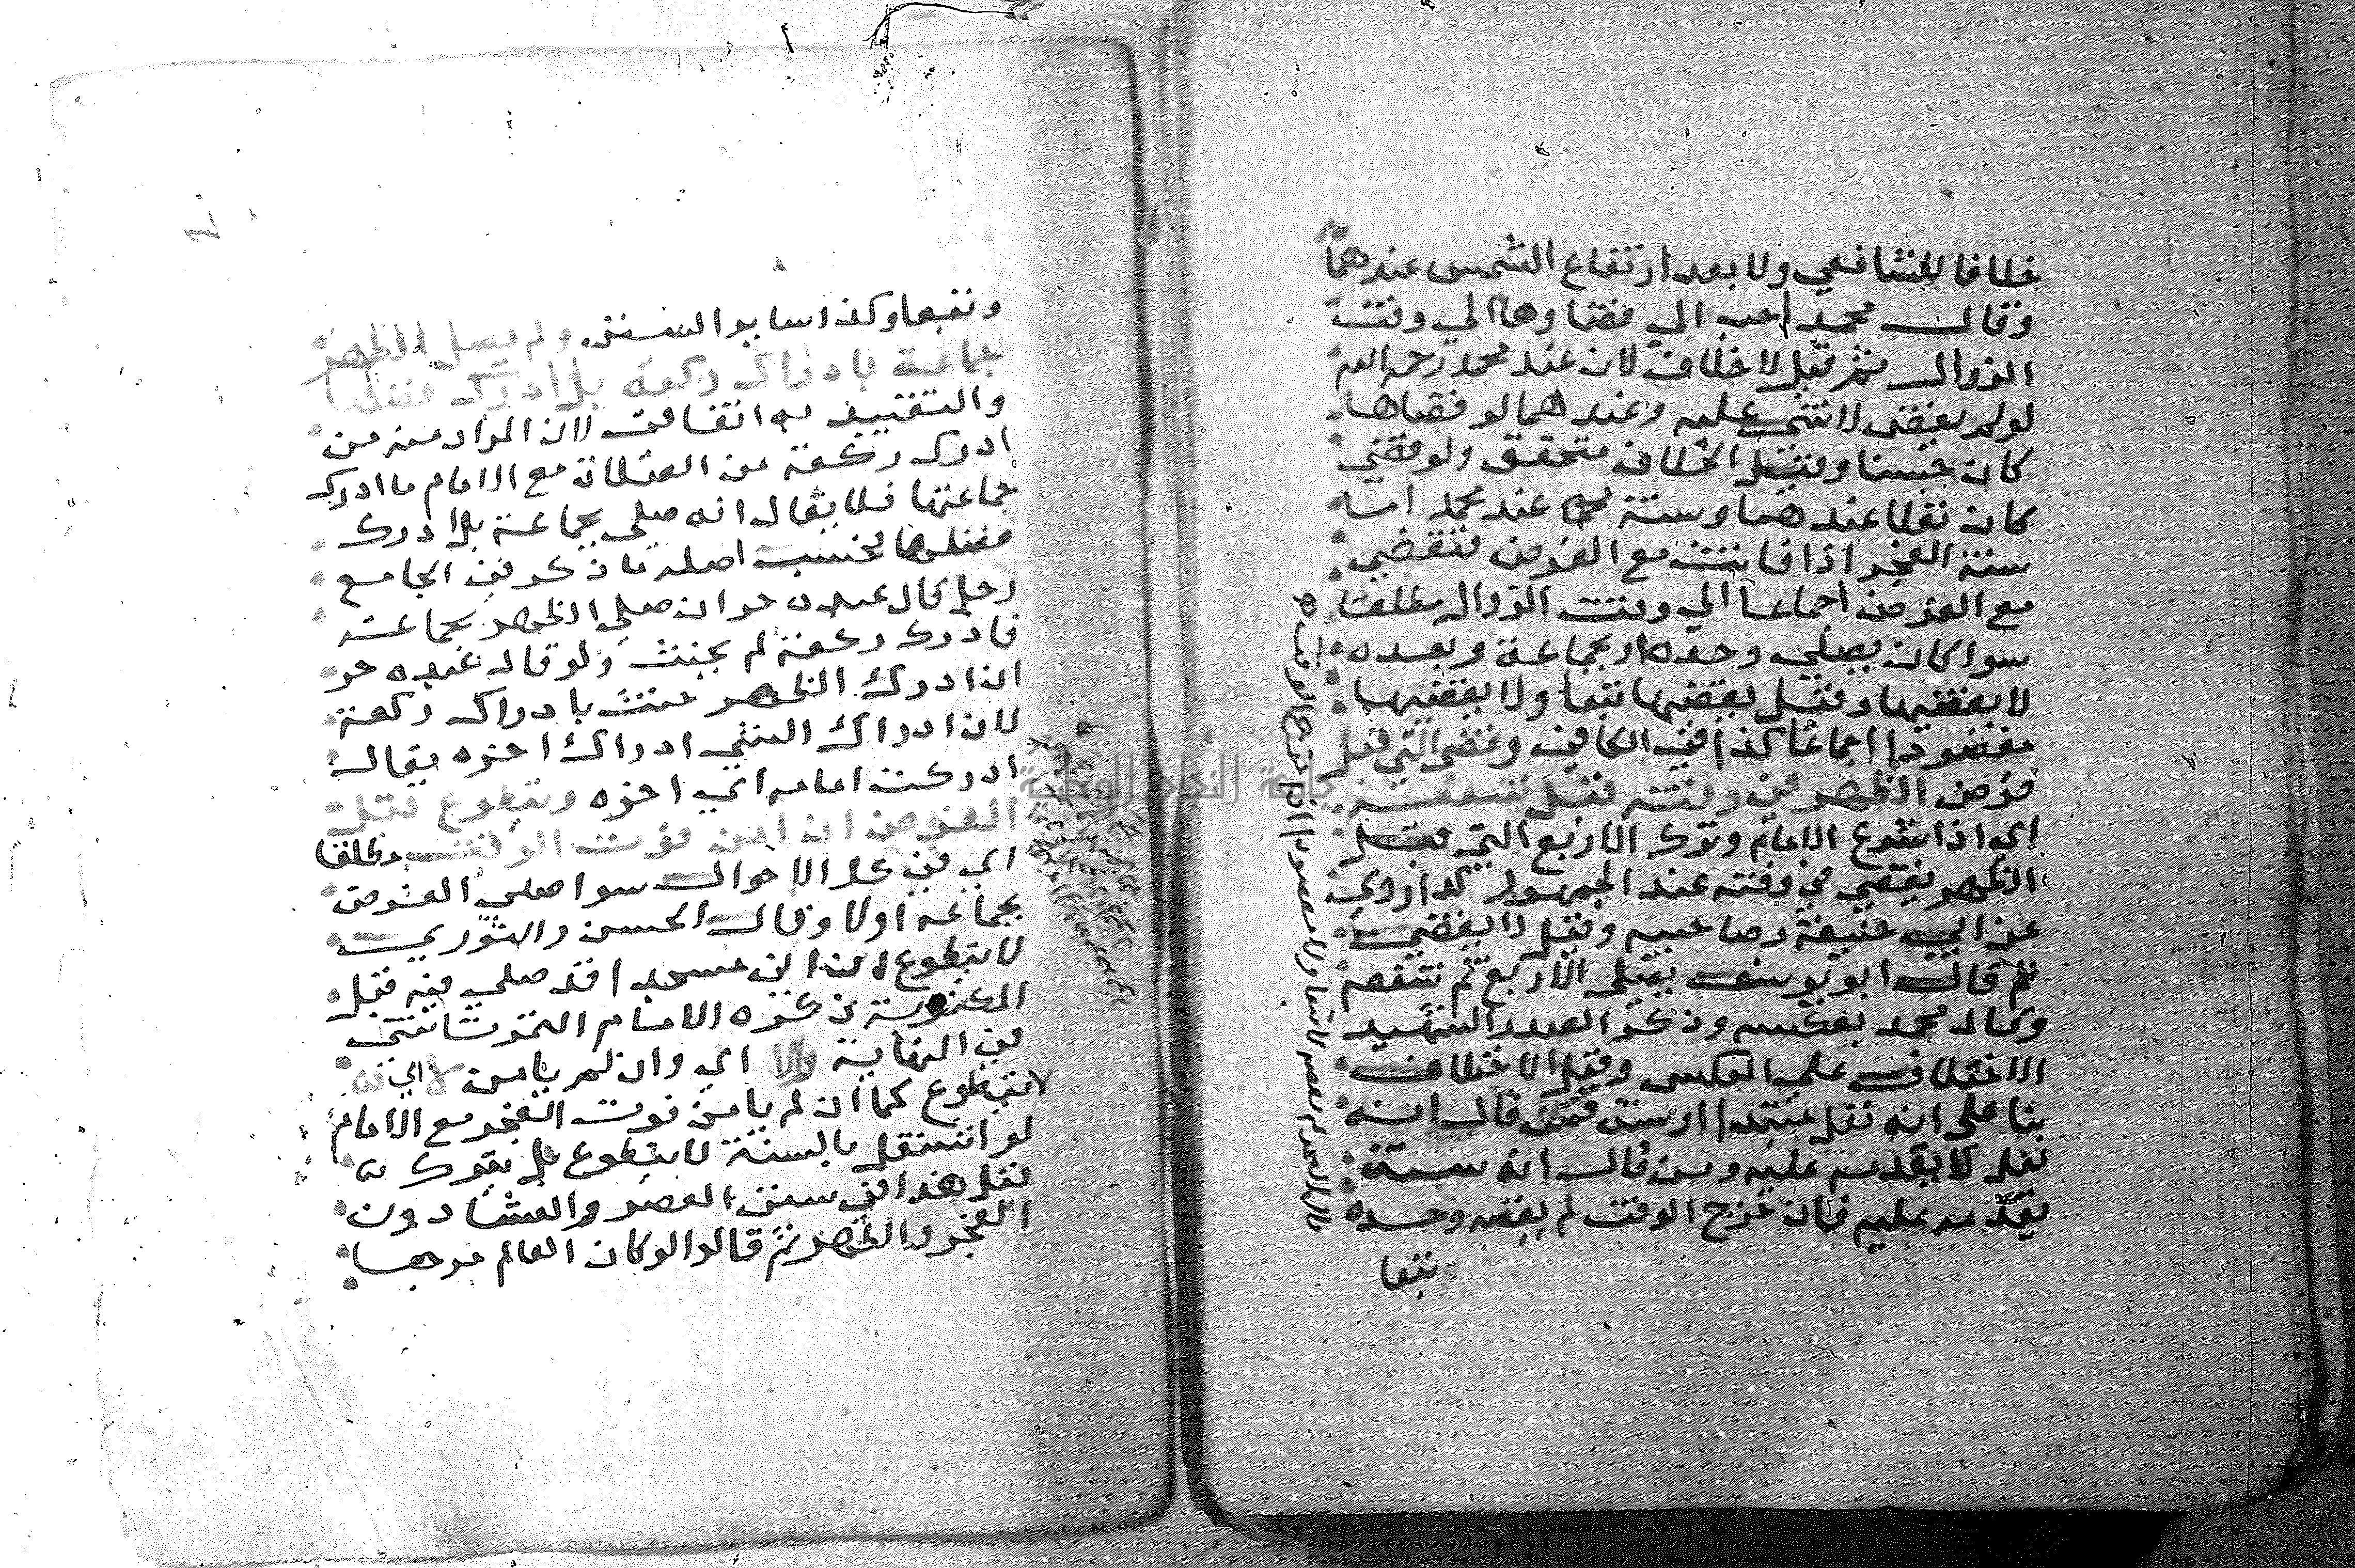 خلافا للشافعي ولا بعد ارتفاع الشمس عندهما
وقال محمد احب الي قضاوها الي وقت
الزوال ثم قيل لا خلاف لان عند محمد رحمه الله
لو لم يقض لا شي عليه وعندهما لو قضاها
كان حسنا وقيل الخلاف متحقق ولو قضي
كان نفلا عندهما وسنة عند محمد اما
سنة الفجر اذا فاتت مع الفرض فتقضي
مع الفرض اجماعا الي وقت الزوال مطلقا
سوا كان يصلي وحده او بجماعة وبعده
لا يقضيها وقيل يقضيها تبعا ولا يقضيها
مقصودا اجماعا كذا في الكافي وقضي التي قبل
فرض الظهر في وقته قبل شفعه
اي اذا شرع الامام وترك الاربع التي قبل
الظهر يقضي في وقته عند الجمهور كذا روي
عن ابي حنيفة وصاحبيه وقيل لا يقضي
ثم قال ابو يوسف يصلي الاربع ثم شفعه
وقال محمد بعكسه وذكر الصدر الشهيد
الاختلاف علي العكس وقيل الاختلاف
بنا علي انه نفل مبتدا او سنة فمن قال انه
نفل لا يقدمه عليه ومن قال انه سنة
يقدمه عليه فان خرج الوقت لم يقضه وحده
تبعا
وتبعا وكذا ساير السنن ولم يصل الظهر
جماعة بادراك ركعة بل ادرك فضلها
والتقييد به اتفاقي لان المراد منه من
ادرك ركعة من الصلاة مع الامام ما ادرك
جماعتها فلا يقال انه صلي بجماعة بل ادرك
فضلها بحسب اصله ما ذكر في الجامع
رجل قال عبده حر ان صلي الظهر بجماعة
فادرك ركعة لم يحنث ولو قال عبده حر
ان ادرك الظهر حنث بادراك ركعة
لان ادراك الشي ادراك اخره يقال
ادركت امامه اي اخره ويتطوع قبل
الفرض ان امن فوت الوقت مطلقا
اي في كل الاحوال سوا صلي الفرض
بجماعة اولا وقال الحسن والثوري
لا يتطوع من اتي مسجدا قد صلي فيه قبل
المكتوبة ذكره الامام التمرتاشي
في النهاية والا اي وان لم يامن لا اي
لا يتطوع كما ان لم يامن فوت الفجر مع الامام
لو اشتغل بالسنة لا يتطوع بل يترك
قيل هذا في سنن العصر والعشا دون
الفجر والظهر ثم قالوا لو كان العالم مرجعا